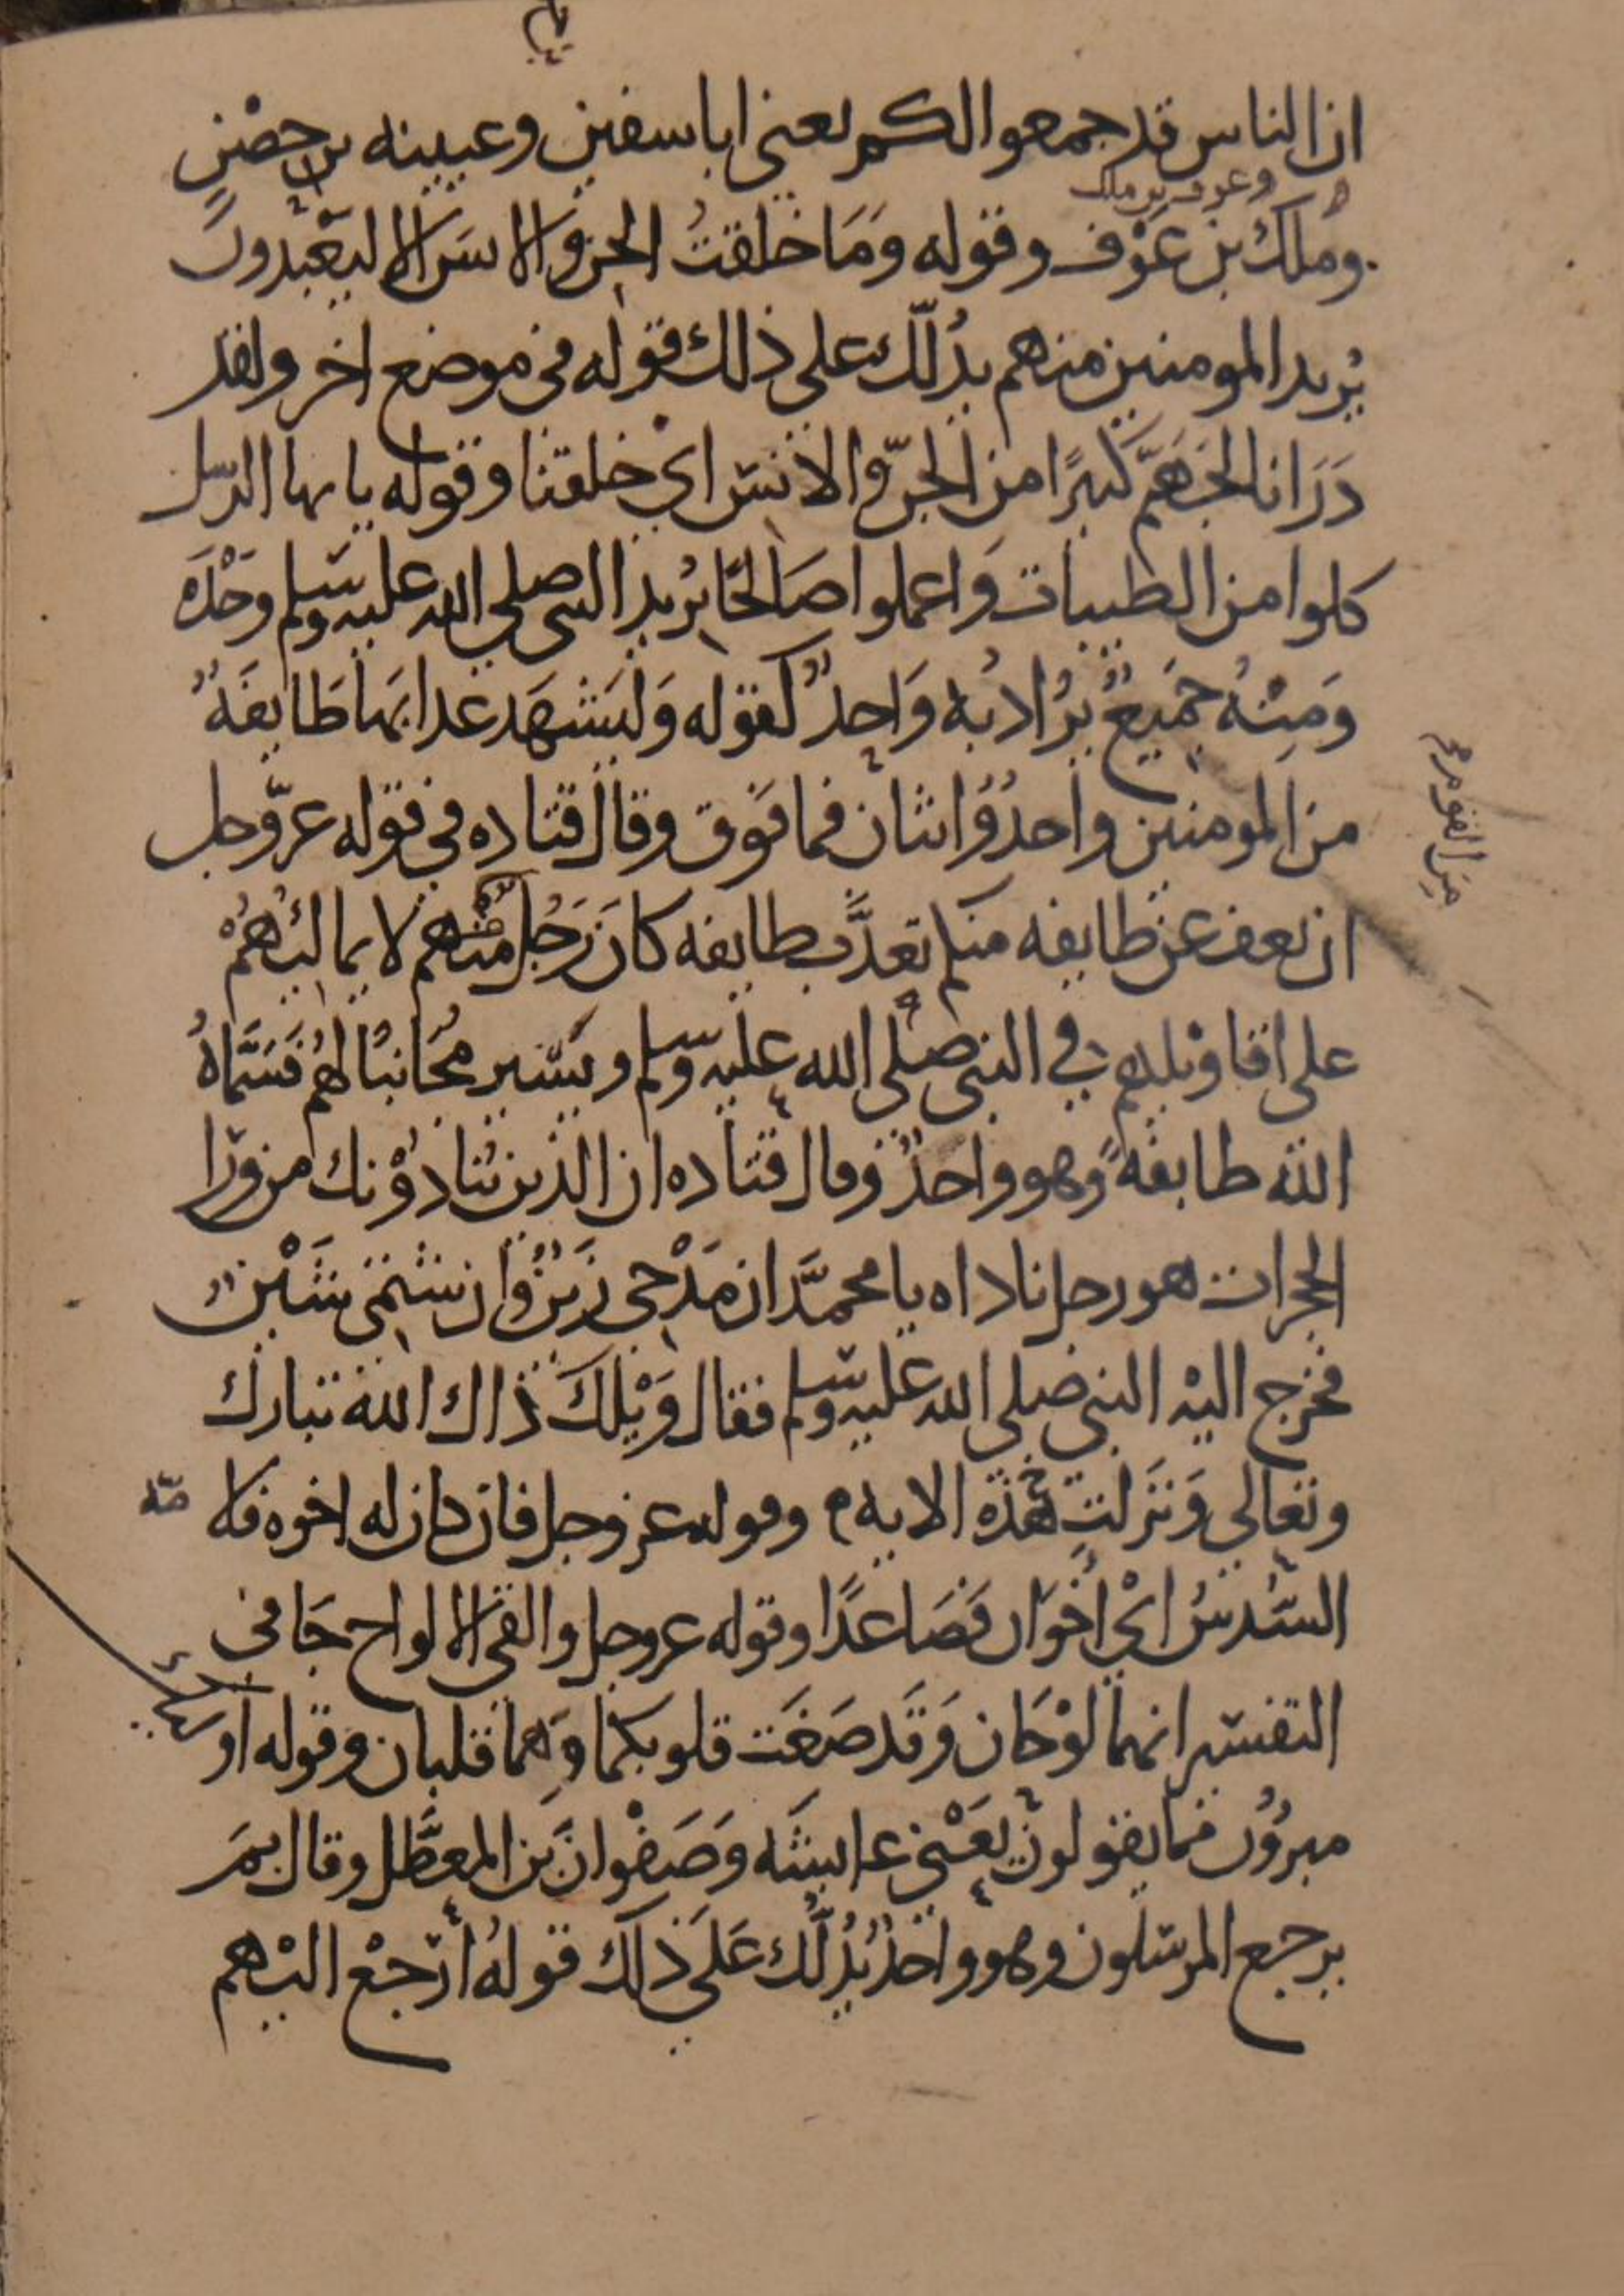 ان الناس قد جمعوا لكم يعنى ابا سفين وعيينه بن حصْنٍ
وعوف بن ملك
وملك بن عَوْف وقوله وَمَا خلقتُ الجن والانسَ الا ليَعْبدونَ
يُريد المومنين منهم يدُلّك على ذلك قوله فى موضع اخر ولقد
ذَرَانا لجهَنّم كثيرًا من الجنّ والانسِ اىْ خلقنا وقوله يايها الرسل
كلوا من الطيبات وَاعملوا صَالحًا يُريد النبى صلى الله عليه وسلم وَحْدَه
وَمِنْهُ جَميعٌ يُرُادُ به وَاحدٌ كقوله وَليَشهَد عذابَهما طَايفَةٌ
من المومنين واحدٌ وَاثنان فما فَوق وقال قتاده فى قوله عزّ وجل
من القوم
ان نعف عن طايفه منكم نعذَّب طايفه كانَ رَجُلٌ مّنهم لا يمالئهُمْ
على اقاوْيلهِم فى النبى صلى الله عليه وسلم ويَسير مُجَانبًا لهُم فَسَمَّاهُ
الله طايفةً وهو واحدٌ وقال قتاده ان الذين ينادوْنك من ورا
الحجرات هو رجل ناداه يا محمّد ان مَدْحى زَينٌ وان شتمى شَيْنٌ
فخرج اليْه النبى صلى الله عليه وسلم فقال وَيْلكَ ذاك الله تبارك
وتعالى وَنزَلت هَذه الايه وقوله عز وجل فان كان له اخوه فلا مّه
السُّدسُ اىْ اخوَان فَصَاعدًا وقوله عز وجل والقى الالواح جَا فى
التفسير انهما لوْحَان وَقَد صَغَت قلوبكما وَهما قلبان وقوله اولئك
مبرؤن مما يقولون يَعْنى عايشَه وَصَفْوانَ بن المعطَّل وقال بمَ
يرجع المرسَلون وهو واحدٌ يَدُلّك عَلى ذلك قولهُ ارْجعْ اليْهم